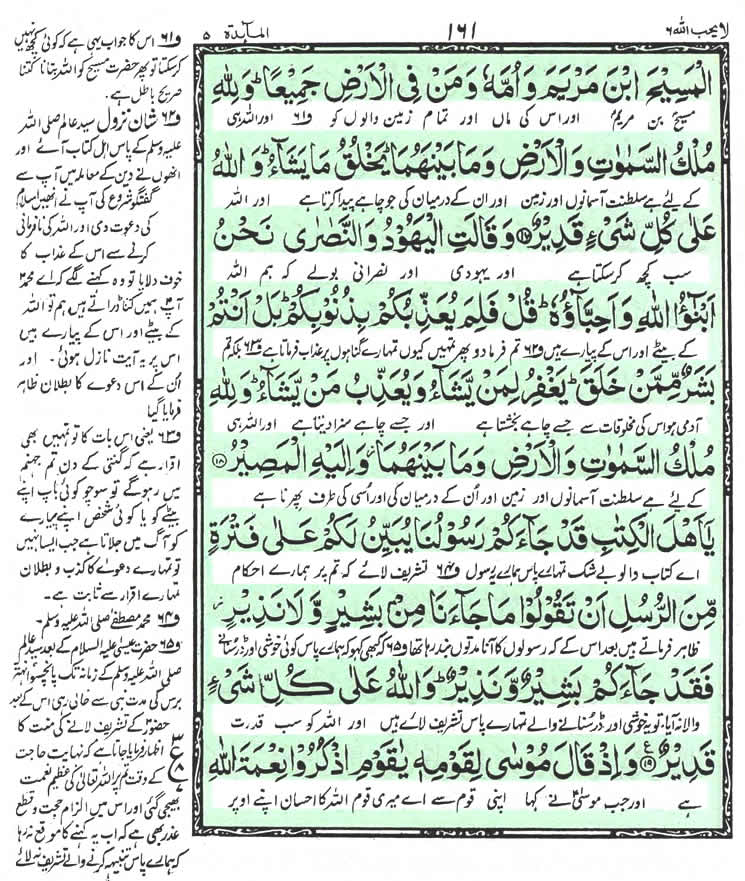 لا یحب اللہ ٦
١٦١
المآىدة ٥
الْمَسِیْحَ ابْنَ مَرْیَمَ وَاُمَّهٗ وَمَنْ فِی الْاَرْضِ جَمِیْعًا ؕ وَلِلّٰهِ
مسیح بن مریم اور اس کی ماں اور تمام زمین والوں کو و٦١ اور اللہ ہی
مُلْكُ السَّمٰوٰتِ وَالْاَرْضِ وَمَا بَیْنَهُمَا ؕ یَخْلُقُ مَا یَشَآءُ ؕ وَاللّٰهُ
کے لیے ہے سلطنت آسمانوں اور زمین اور ان کے درمیان کی جو چاہے پیدا کرتا ہے اور اللہ
عَلٰی كُلِّ شَیْءٍ قَدِیْرٌ ۝١٧ وَقَالَتِ الْیَهُوْدُ وَالنَّصٰرٰی نَحْنُ
سب کچھ کرسکتا ہے اور یہودی اور نصرانی بولے کہ ہم اللہ
اَبْنٰٓؤُا اللّٰهِ وَاَحِبَّآؤُهٗ ؕ قُلْ فَلِمَ یُعَذِّبُكُمْ بِذُنُوْبِكُمْ ؕ بَلْ اَنْتُمْ
کے بیٹے اور اس کے پیارے ہیں و٦٢ تم فرما دو پھر تمہیں کیوں تمہارے گناہوں پر عذاب فرماتا ہے و٦٣ بلکہ تم
بَشَرٌ مِّمَّنْ خَلَقَ ؕ یَغْفِرُ لِمَنْ یَّشَآءُ وَیُعَذِّبُ مَنْ یَّشَآءُ ؕ وَلِلّٰهِ
آدمی ہو اس کی مخلوقات سے جسے چاہے بخشتا ہے اور جسے چاہے سزا دیتا ہے اور اللہ ہی
مُلْكُ السَّمٰوٰتِ وَالْاَرْضِ وَمَا بَیْنَهُمَا ؗ وَاِلَیْهِ الْمَصِیْرُ ۝١٨
کے لیے ہے سلطنت آسمانوں اور زمین اور ان کے درمیان کی اور اسی کی طرف پھرنا ہے
یٰۤاَهْلَ الْكِتٰبِ قَدْ جَآءَكُمْ رَسُوْلُنَا یُبَیِّنُ لَكُمْ عَلٰی فَتْرَةٍ
اے کتاب والو بے شک تمہارے پاس ہمارے یہ رسول و٦٤ تشریف لائے کہ تم پر ہمارے احکام
مِّنَ الرُّسُلِ اَنْ تَقُوْلُوْا مَا جَآءَنَا مِنْۢ بَشِیْرٍ وَّلَا نَذِیْرٍ ؗ
ظاہر فرماتے ہیں بعد اس کے کہ رسولوں کا آنا مدتوں بند رہا تھا و٦٥ کہ کبھی کہو کہ ہمارے پاس کوئی خوشی اور ڈر سنانے
فَقَدْ جَآءَكُمْ بَشِیْرٌ وَّنَذِیْرٌ ؕ وَاللّٰهُ عَلٰی كُلِّ شَیْءٍ
والا نہ آیا تو یہ خوشی اور ڈر سنانے والے تمہارے پاس تشریف لائے ہیں اور اللہ کو سب قدرت
قَدِیْرٌ ۝١٩ وَاِذْ قَالَ مُوْسٰی لِقَوْمِهٖ یٰقَوْمِ اذْكُرُوْا نِعْمَةَ اللّٰهِ
ہے اور جب موسیٰ نے کہا اپنی قوم سے اے میری قوم اللہ کا احسان اپنے اوپر
و٦١ اس کا جواب یہی ہے کہ کوئی کچھ نہیں
کرسکتا تو پھر حضرت مسیح کو اللہ بتانا کتنا
صریح باطل ہے۔
و٦٢ شان نزول سید عالم صلی اللہ
علیہ وسلم کے پاس اہل کتاب آئے اور
انھوں نے دین کے معاملہ میں آپ سے
گفتگو شروع کی آپ نے انھیں اسلام
کی دعوت دی اور اللہ کی نافرمانی
کرنے سے اس کے عذاب کا
خوف دلایا تو وہ کہنے لگے کہ اے محمد
آپ ہمیں کیا ڈراتے ہیں ہم تو اللہ
کے بیٹے اور اس کے پیارے ہیں
اس پر یہ آیت نازل ہوئی۔ اور
اُن کے اس دعوے کا بطلان ظاہر
فرمایا گیا
و٦٣ یعنی اس بات کا تو تمہیں بھی
اقرار ہے کہ گنتی کے دن تم جہنم
میں رہوگے تو سوچو کوئی باپ اپنے
بیٹے کو یا کوئی شخص اپنے پیارے
کو آگ میں جلاتا ہے جب ایسا نہیں
تو تمہارے دعوے کا کذب و بطلان
تمہارے اقرار سے ثابت ہے۔
و٦٤ محمد مصطفےٰ صلی اللہ علیہ وسلم۔
و٦٥ حضرت عیسیٰ علیہ السلام کے بعد سید عالم
صلی اللہ علیہ وسلم کے زمانہ تک پانچسو انہتر
برس کی مدت نبی سے خالی رہی اس کے بعد
حضور کے تشریف لانے کی منت کا
اظہار فرمایا جاتا ہے کہ نہایت حاجت
کے وقت تم پر اللہ تعالیٰ کی عظیم نعمت
بھیجی گئی اور اس میں الزام حجت و قطع
عذر بھی ہے کہ اب یہ کہنے کا موقع نہ رہا
کہ ہمارے پاس تنبیہ کرنے والے تشریف نہ لائے